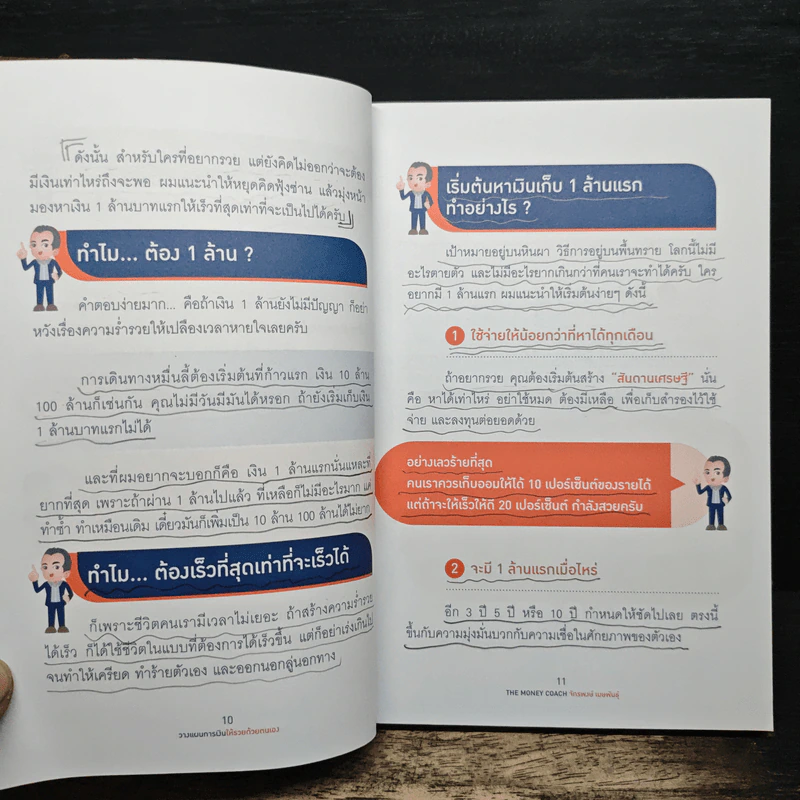 ดังนั้น สำหรับใครที่อยากรวย แต่ยังคิดไม่ออกว่าจะต้อง
มีเงินเท่าไหร่ถึงจะพอ ผมแนะนำให้หยุดคิดฟุ้งซ่าน แล้วมุ่งหน้า
มองหาเงิน 1 ล้านบาทแรกให้เร็วที่สุดเท่าที่จะเป็นไปได้ครับ
ทำไม... ต้อง 1 ล้าน ?
คำตอบง่ายมาก... คือถ้าเงิน 1 ล้านยังไม่มีปัญญา ก็อย่า
หวังเรื่องความร่ำรวยให้เปลืองเวลาหายใจเลยครับ
การเดินทางหมื่นลี้ต้องเริ่มต้นที่ก้าวแรก เงิน 10 ล้าน
100 ล้านก็เช่นกัน คุณไม่มีวันมีมันได้หรอก ถ้ายังเริ่มเก็บเงิน
1 ล้านบาทแรกไม่ได้
และที่ผมอยากจะบอกก็คือ เงิน 1 ล้านแรกนั่นแหละที่
ยากที่สุด เพราะถ้าผ่าน 1 ล้านไปแล้ว ที่เหลือก็ไม่มีอะไรมาก แค่
ทำซ้ำ ทำเหมือนเดิม เดี๋ยวมันก็เพิ่มเป็น 10 ล้าน 100 ล้านได้ไม่ยาก
ทำไม... ต้องเร็วที่สุดเท่าที่จะเร็วได้
ก็เพราะชีวิตคนเรามีเวลาไม่เยอะ ถ้าสร้างความร่ำรวย
ได้เร็ว ก็ได้ใช้ชีวิตในแบบที่ต้องการได้เร็วขึ้น แต่ก็อย่าเร่งเกินไป
จนทำให้เครียด ทำร้ายตัวเอง และออกนอกลู่นอกทาง
10
วางแผนการเงินให้รวยด้วยตนเอง
เริ่มต้นหาเงินเก็บ 1 ล้านแรก
ทำอย่างไร ?
เป้าหมายอยู่บนหินผา วิธีการอยู่บนพื้นทราย โลกนี้ไม่มี
อะไรตายตัว และไม่มีอะไรยากเกินกว่าที่คนเราจะทำได้ครับ ใคร
อยากมี 1 ล้านแรก ผมแนะนำให้เริ่มต้นง่ายๆ ดังนี้
1 ใช้จ่ายให้น้อยกว่าที่หาได้ทุกเดือน
ถ้าอยากรวย คุณต้องเริ่มต้นสร้าง "สันดานเศรษฐี" นั่น
คือ หาได้เท่าไหร่ อย่าใช้หมด ต้องมีเหลือ เพื่อเก็บสำรองไว้ใช้
จ่าย และลงทุนต่อยอดด้วย
อย่างเลวร้ายที่สุด
คนเราควรเก็บออมให้ได้ 10 เปอร์เซ็นต์ของรายได้
แต่ถ้าจะให้เร็วให้ดี 20 เปอร์เซ็นต์ กำลังสวยครับ
2 จะมี 1 ล้านแรกเมื่อไหร่
อีก 3 ปี 5 ปี หรือ 10 ปี กำหนดให้ชัดไปเลย ตรงนี้
ขึ้นกับความมุ่งมั่นบวกกับความเชื่อในศักยภาพของตัวเอง
11
THE MONEY COACH จักรพงษ์ เมษพันธุ์